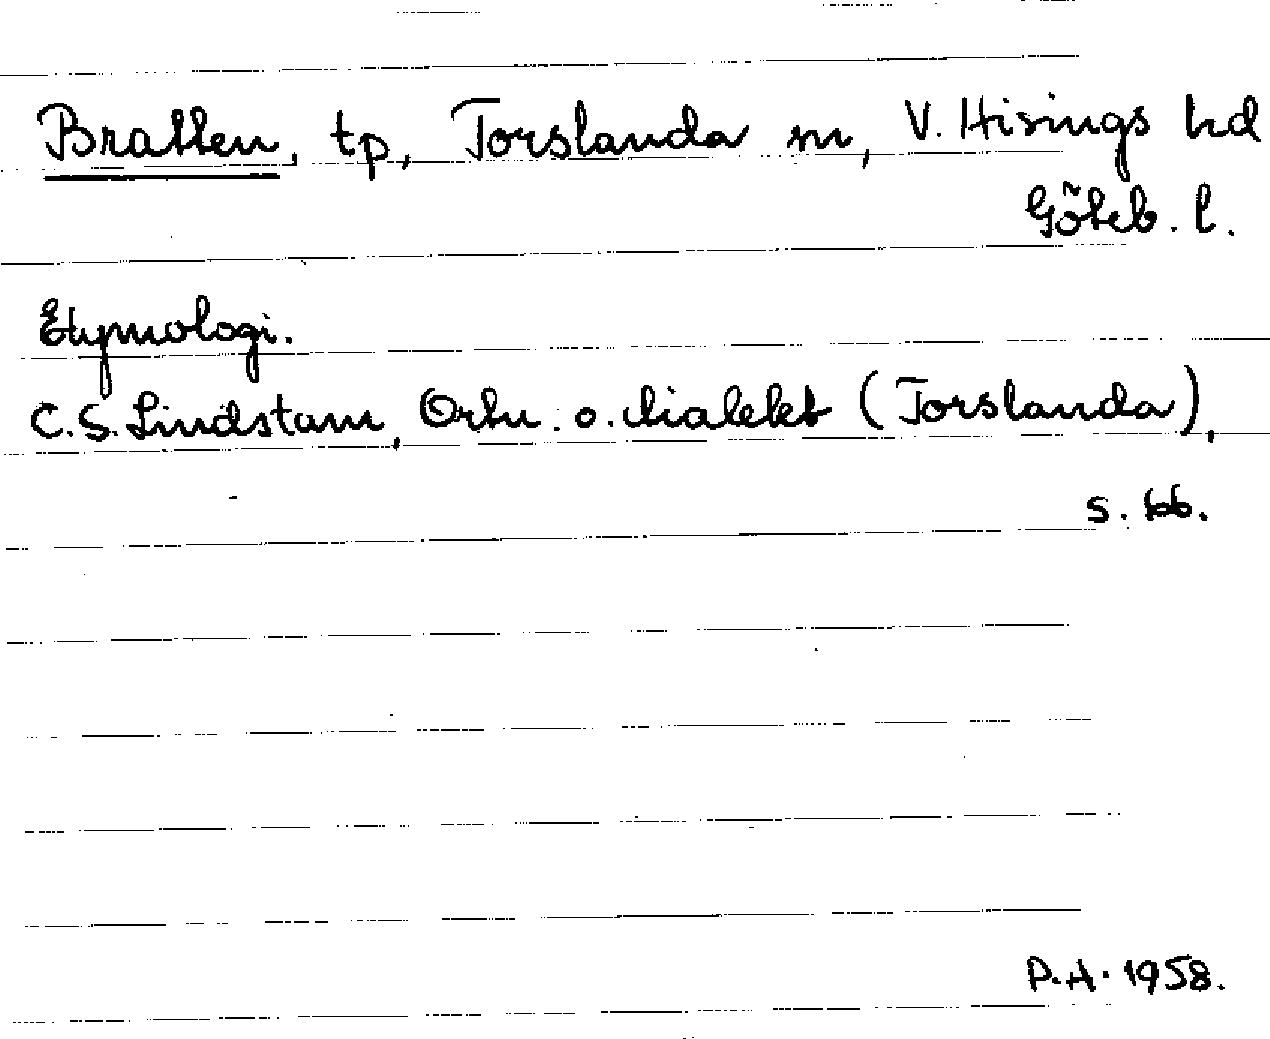 Bratten, tp, Torslanda sn, V. Hisings hd
Göteb. l.
Etymologi.
C.S. Lindstam, Ortn. o. dialekt (Torslanda),
s. 66.
P.A. 1958.